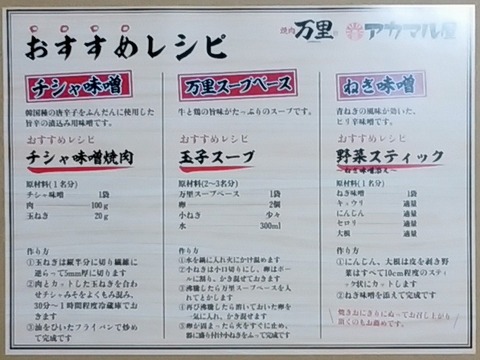 おすすめレシピ
焼肉 万里 アカマル屋
チシャ味噌
韓国種の唐辛子をふんだんに使用した
旨辛の漬込み用味噌です。
おすすめレシピ
チシャ味噌焼肉
原材料(1名分)
チシャ味噌 1袋
肉 100g
玉ねぎ 20g
作り方
①玉ねぎは縦半分に切り繊維に
逆らって5mm厚に切ります
②肉とカットした玉ねぎを合わ
せチシャみそをよくもみ混み、
30分〜1時間程度冷蔵庫でお
きます
③油をひいたフライパンで炒め
て完成です
万里スープベース
牛と鶏の旨味がたっぷりのスープです。
おすすめレシピ
玉子スープ
原材料(2〜3名分)
万里スープベース 1袋
卵 2個
小ねぎ 少々
水 300ml
作り方
①水を鍋に入れ火にかけ温めます
②小ねぎは小口切りにし、卵はボー
ルに割り、かき混ぜておきます
③沸騰したら万里スープベースを入
れてとかします
④再び沸騰したら溶いておいた卵を
一気に入れ、かき混ぜます
⑤卵が固まったら火をすぐに止め、
器に盛り付け小ねぎをふって完成です
ねぎ味噌
青ねぎの風味が効いた、
ピリ辛味噌です。
おすすめレシピ
野菜スティック
〜ねぎ味噌添え〜
原材料(1名分)
ねぎ味噌 1袋
キュウリ 適量
にんじん 適量
セロリ 適量
大根 適量
作り方
①にんじん、大根は皮を剥き野
菜はすべて10cm程度のスティ
ック状にカットします
②ねぎ味噌を添えて完成です
焼きおにぎりにぬってお召し上がり
頂くのもお薦めです。